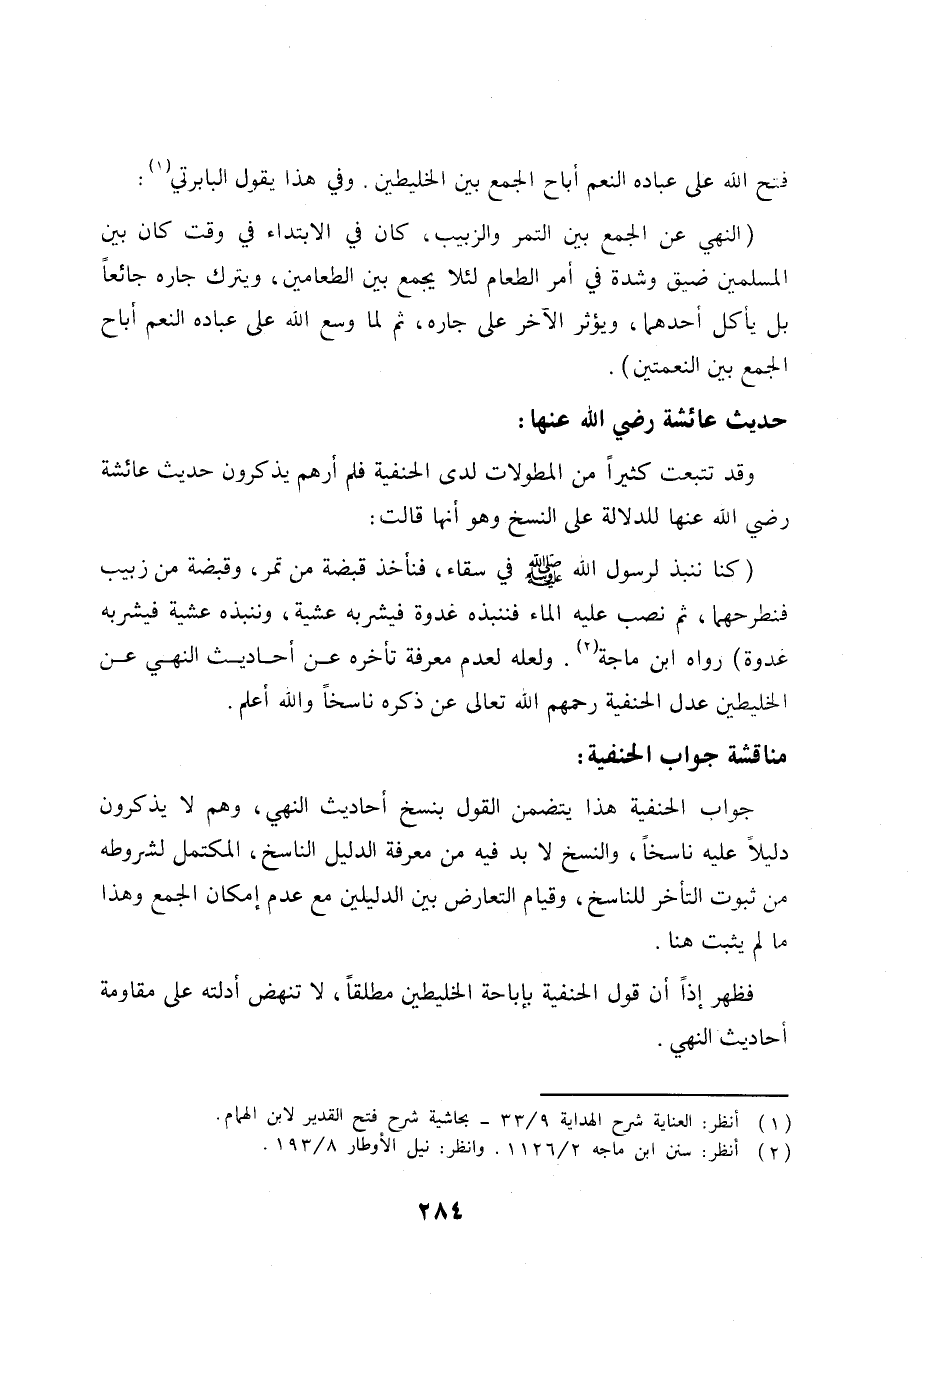 فتح الله على عباده النعم أباح الجمع بين الخليطين. وفي هذا يقول البابرتي(١):
(النهي عن الجمع بين التمر والزبيب، كان في الابتداء في وقت كان بين
المسلمين ضيق وشدة في أمر الطعام لئلا يجمع بين الطعامين، ويترك جاره جائعاً
بل يأكل أحدهما، ويؤثر الآخر على جاره، ثم لما وسع الله على عباده النعم أباح
الجمع بين النعمتين).
حديث عائشة رضي الله عنها:
وقد تتبعت كثيراً من المطولات لدى الحنفية فلم أرهم يذكرون حديث عائشة
رضي الله عنها للدلالة على النسخ وهو أنها قالت:
(كنا ننبذ لرسول الله ﷺ في سقاء، فنأخذ قبضة من تمر، وقبضة من زبيب
فنطرحهما، ثم نصب عليه الماء فننبذه غدوة فيشربه عشية، وننبذه عشية فيشربه
غدوة) رواه ابن ماجة(٢). ولعله لعدم معرفة تأخره عن أحاديث النهي عن
الخليطين عدل الحنفية رحمهم الله تعالى عن ذكره ناسخاً والله أعلم.
مناقشة جواب الحنفية:
جواب الحنفية هذا يتضمن القول بنسخ أحاديث النهي، وهم لا يذكرون
دليلاً عليه ناسخاً، والنسخ لا بد فيه من معرفة الدليل الناسخ، المكتمل لشروطه
من ثبوت التأخر للناسخ، وقيام التعارض بين الدليلين مع عدم إمكان الجمع وهذا
ما لم يثبت هنا.
فظهر إذاً أن قول الحنفية بإباحة الخليطين مطلقاً، لا تنهض أدلته على مقاومة
أحاديث النهي.
(١) أنظر: العناية شرح الهداية ٣٣/٩ - بحاشية شرح فتح القدير لابن الهمام.
(٢) أنظر: سنن ابن ماجه ١١٢٦/٢. وانظر: نيل الأوطار ١٩٣/٨.
٢٨٤